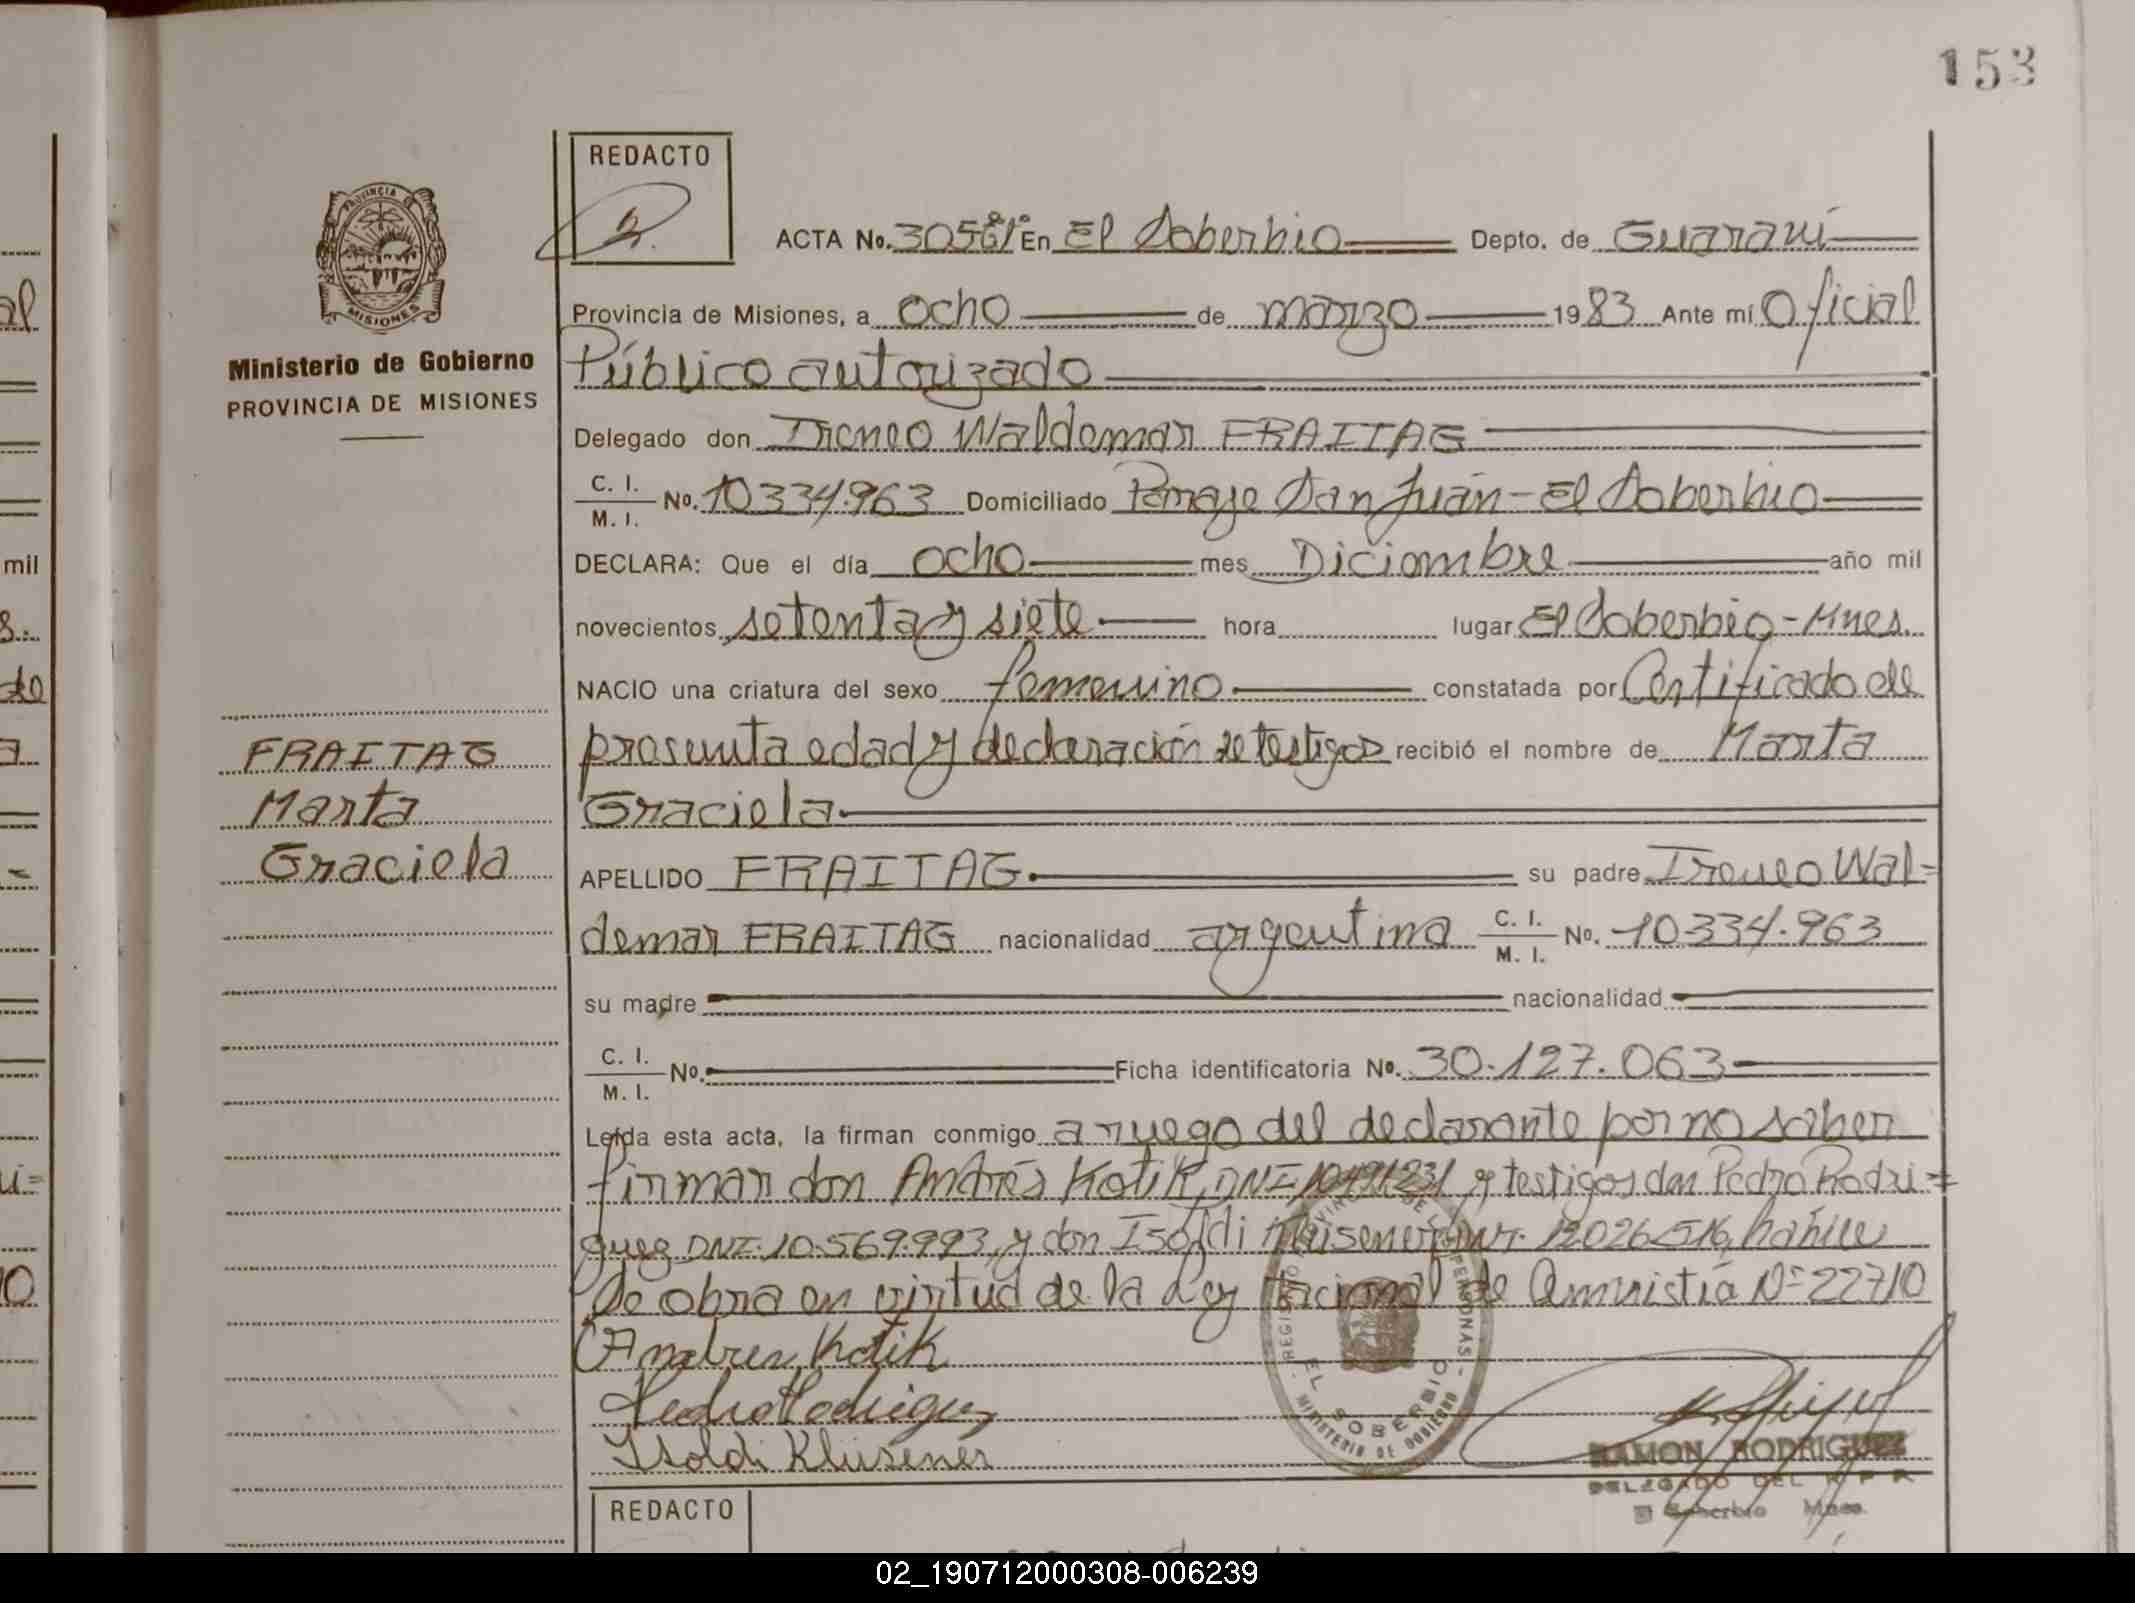 153
REDACTO
ACTA No. En El Soberbio Depto. de Guaraní
Provincia de Misiones, a ocho de marzo 1983 Ante mí Oficial
Público autorizado
Delegado don Ireneo Waldemar FRAITAG
C. I.
M. I.
No. 10334.963 Domiciliado Paraje San Juán - El Soberbio
DECLARA: Que el día ocho mes Diciembre año mil
novecientos setenta y siete hora lugar El Soberbio - Mnes.
NACIO una criatura del sexo femenino constatada por Certificado de
presunta edad y declaración de testigos recibió el nombre de Marta
Graciela
APELLIDO FRAITAG su padre Ireneo Wal=
demar FRAITAG nacionalidad argentina C. I. No. 10.334.963
M. I.
su madre nacionalidad
C. I.
M. I.
No. Ficha identificatoria No. 30.127.063
Leída esta acta, la firman conmigo a ruego del declarante por no saber
firmar don Andrés Kotik, DNI y testigos don Pedro Rodri=
guez DNI. 10.569.993, y don Isoldi 12026516, hábiles
Se obra en virtud de la Ley Nacional de Amnistía Nº 22710
Andres Kotik
Pedro Rodriguez
Isoldi Klusener
RAMON RODRIGUEZ
DELEGADO DEL R P R
El Soberbio Mnes.
REGISTRO PROVINCIAL DE LAS PERSONAS
EL SOBERBIO
MINISTERIO DE GOBIERNO
PROVINCIA
MISIONES
Ministerio de Gobierno
PROVINCIA DE MISIONES
FRAITAG
Marta
Graciela
REDACTO
al
mil
8.
de
a
ui=
10
02_190712000308-006239